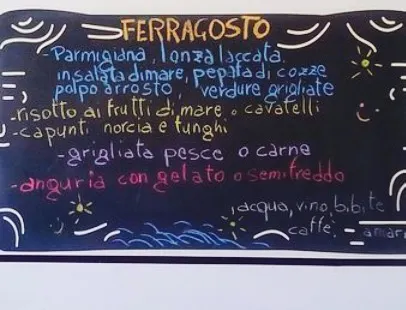 FERRAGOSTO
Parmigiana, lonza laccata.
insalata di mare, pepata di cozze
polpo arrosto, verdure grigliate
-risotto ai frutti di mare o cavatelli
-capunti norcia e funghi
-grigliata pesce o carne
-anguria con gelato o semifreddo
acqua, vino, bibite
caffè, - amari